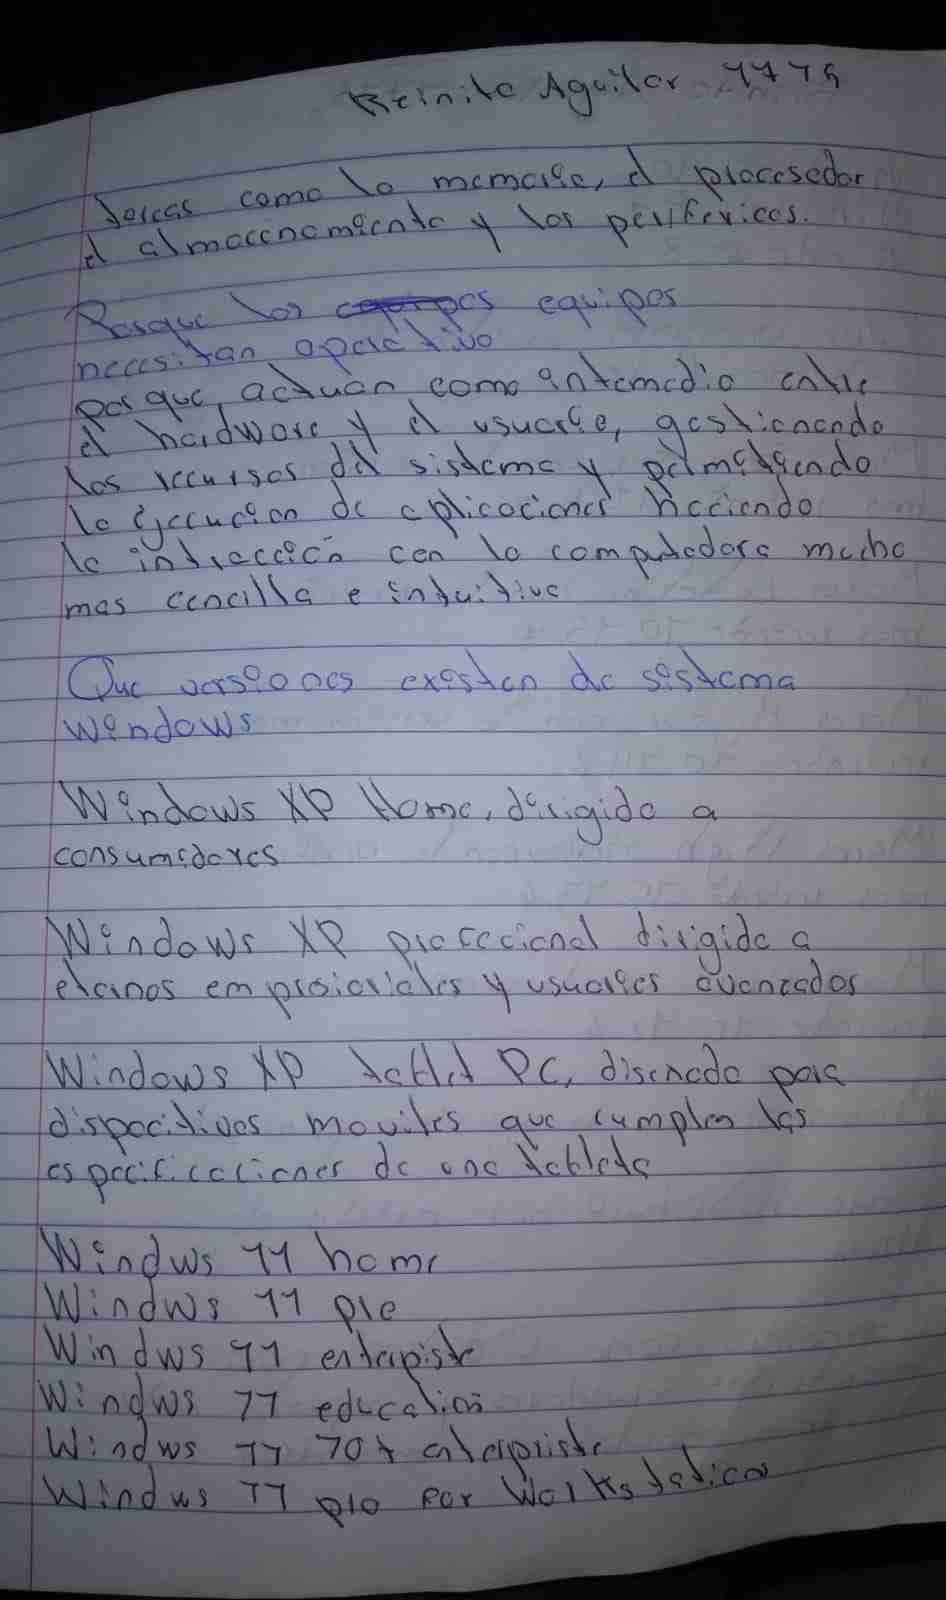 Reinile Aguilar 1115
Tareas como la memoria, el procesador
el almacenamiento y los perifericos.
Porque los equipos
necesitan operativo
porque, actuan como intemedio entre
el hardware y el usuario, gestionando
los recursos del sistema y permitiendo
la ejecucion de aplicaciones haciendo
la intraccion con la computadora mucho
mas cencilla e intuitiva
Que versiones existen de sistema
windows
Windows XP Home, dirigido a
consumidores
Windows XP profecional dirigido a
empresariales y usuarios avanzados
Windows XP tablet PC, disenado para
dispocitivos moviles que cumplen las
especificaciones de una tableta
Windws 11 home
Windws 11 pro
Windws 11 enterpiste
Windws 11 education
Windws 11 IOT enterpriste
Windws 11 pro For Workstation